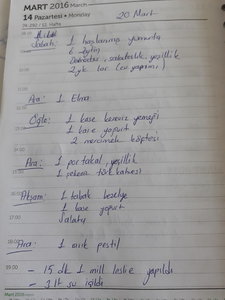 MART 2016 March
14 Pazartesi • Monday
20 Mart
Sabah: 1 haşlanmış yumurta
6 zeytin
Domates, salatalık, yeşillik
Ara: 1 Elma
Öğle: 1 kase kereviz yemeği
1 kase yoğurt
2 mercimek köftesi
Ara: 1 portakal, yeşillik
1 türk kahvesi
Akşam: 1 tabak bezelye
1 kase yoğurt
Salata
17:00
Ara: 1 pestil
- 15 dk 1 yapıldı
- 3 lt su içildi
Mart 2016